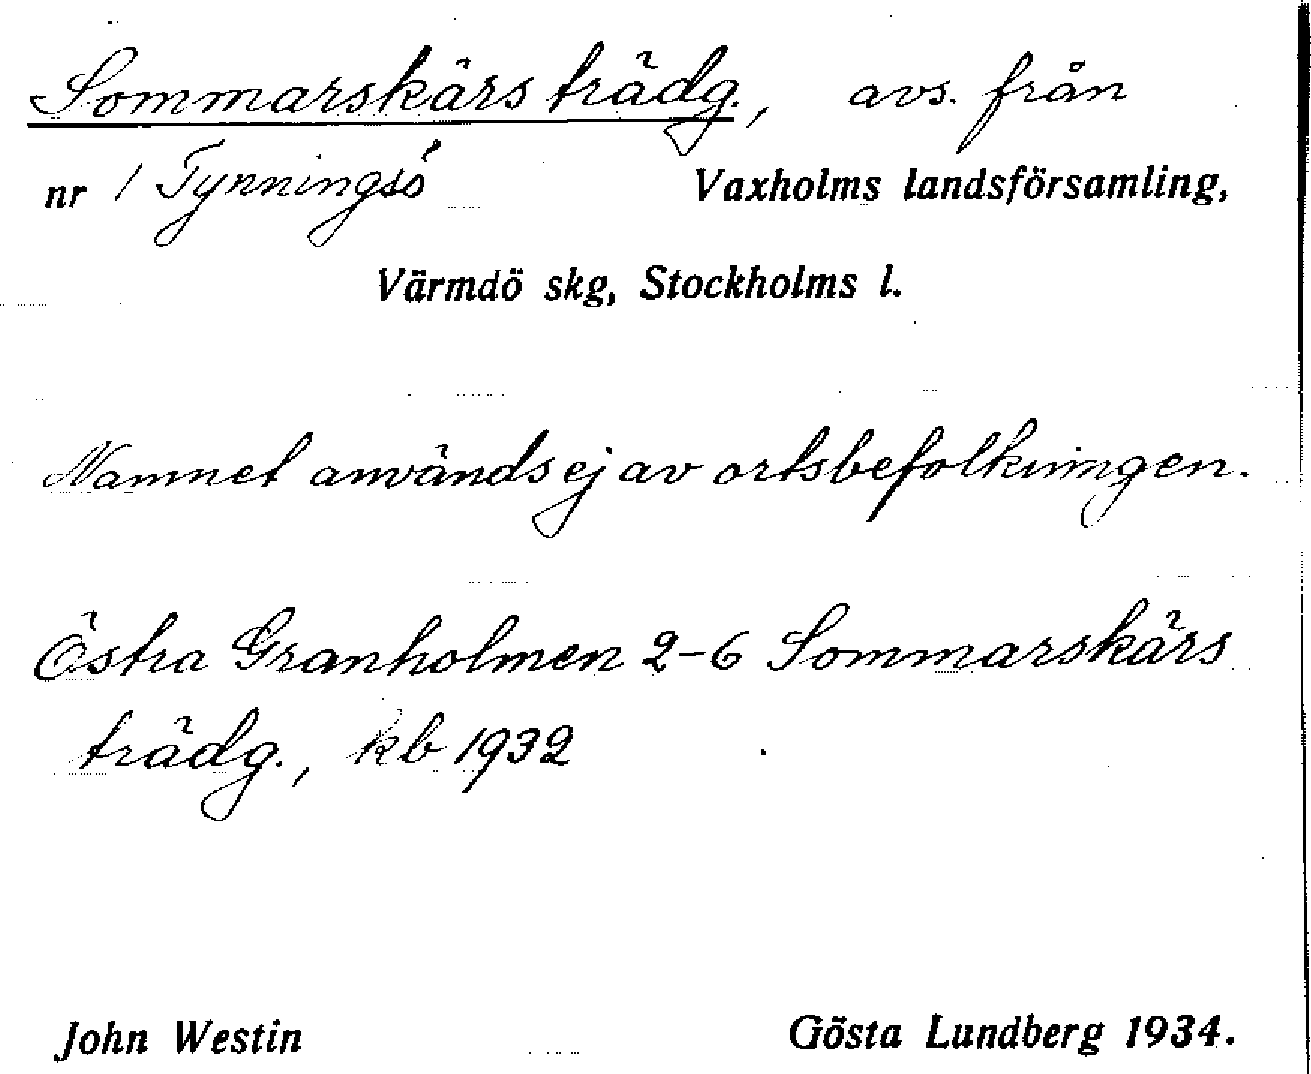 Sommarskärs trädg., avs. från
nr 1 Tynningsö Vaxholms landsförsamling,
Värmdö skg, Stockholms l.
Namnet används ej av ortsbefolkningen.
Östra Granholmen 2-6 Sommarskärs
trädg., kb 1932
John Westin Gösta Lundberg 1934.